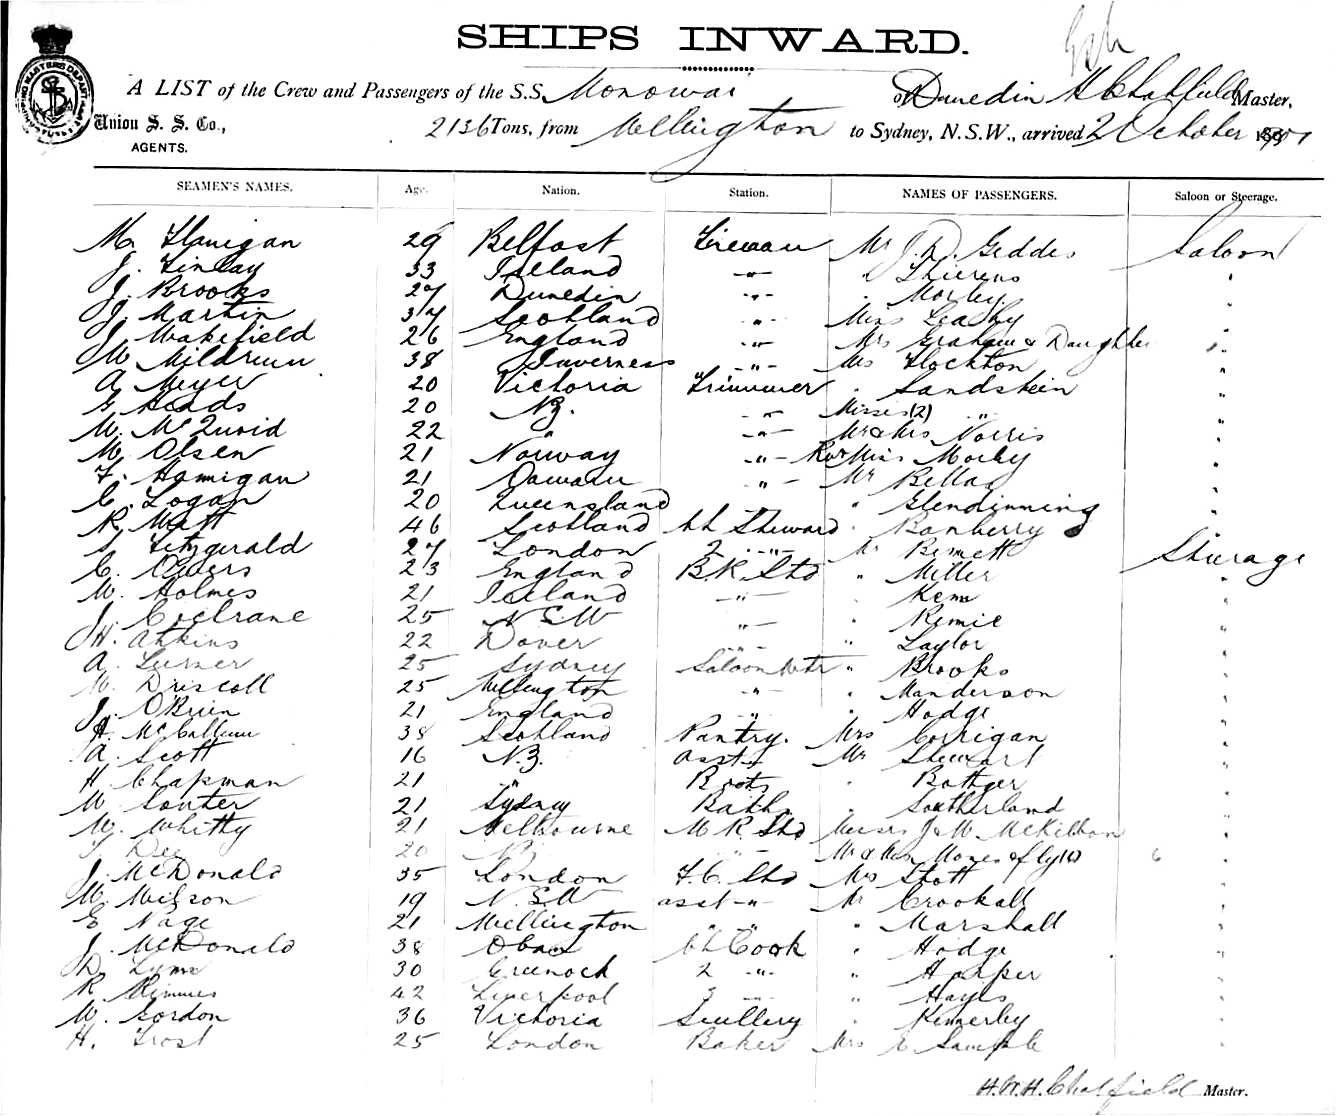 SHIPS INWARD.
A LIST of the Crew and Passengers of the S.S. Monowai of Dunedin H Chatfield Master,
Union S. S. Co., 2136 Tons, from Wellington to Sydney, N.S.W., arrived 2 October 18
AGENTS.
SEAMEN'S NAMES. Age. Nation. Station. NAMES OF PASSENGERS. Saloon or Steerage.
M. Flanigan 29 Belfast Fireman Mr J. D. Geddes Saloon
J. Finlay 33 Ireland -"- " Thierens "
J. Brooks 27 Dunedin -"- " Morley "
J. Martin 37 Scotland -"- Miss Leahy "
J. Wakefield 26 England -"- Mrs Graham & Daughter "
W Mildrum 38 Inverness -"- Mrs Flockton "
A Meyer 20 Victoria Trimmer " Sandstein "
G 20 N.Z. -"- Misses (2) " "
W. McQuoid 22 " -"- Mr & Mrs Norris "
M. Olsen 21 Norway -"- Miss Morley "
F. Hannigan 21 Oamaru -"- Mr Bellas "
C. Logan 20 Queensland " Glendinning "
R. Watt 46 Scotland Ch Steward " Banberry "
Fitzgerald 27 London 2 -"- Mr Bennett Steerage
C. 23 England B.R. Std " Miller "
W. Holmes 21 Ireland -"- " Kem "
J. Cochrane 25 N.S.W -"- " Rennie "
H. Atkins 22 Dover -"- " Taylor "
A. Turner 25 Sydney Saloon Wtr " Brooks "
W. Driscoll 25 Wellington -"- " Manderson "
J. O'Brien 21 England " " Hodge "
A. McCallum 38 Scotland Pantry. Mrs Corrigan "
A. Scott 16 N.Z. asst " Mr Stewart "
H. Chapman 21 " Boots " Bottger "
W Souter 21 Sydney Baths " Southerland "
W. Whitty 21 Melbourne M.R. Std Messrs J & W McKibbon "
T Dee 20 N.Z. -"- Mr & Mrs "
J. McDonald 35 London F.C. Std Mrs Stott "
W. Wilson 19 N.S.W asst -"- Mr Crookall "
E Nage 21 Wellington " " " Marshall "
J. McDonald 38 Oban Ch Cook " Hodge "
D. Lyne 30 Greenock 2 -"- " Harper "
R. Kimmis 42 Liverpool 3 -"- " Hayes "
W. Gordon 36 Victoria Scullery " Kennerley "
H. Frost 25 London Baker Mrs E Sample "
H.W.H. Chatfield Master.